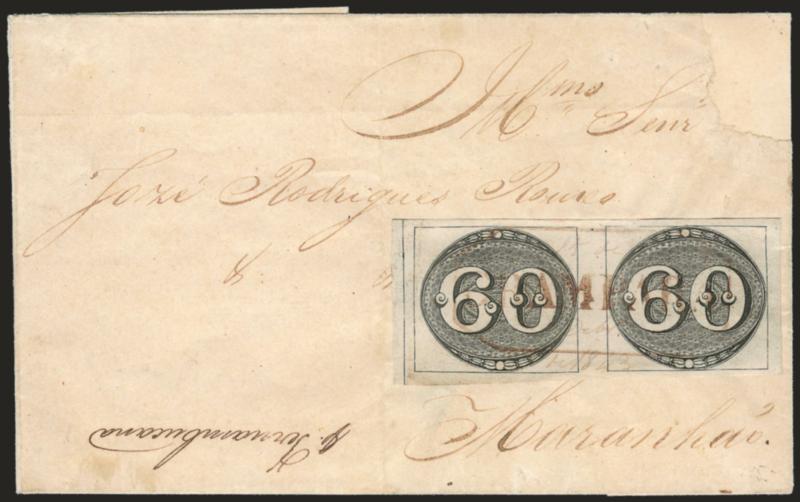 Illmo Senr
Jozé Rodrigues Roxo
60 60
Maranhão.
p. Pernambucana